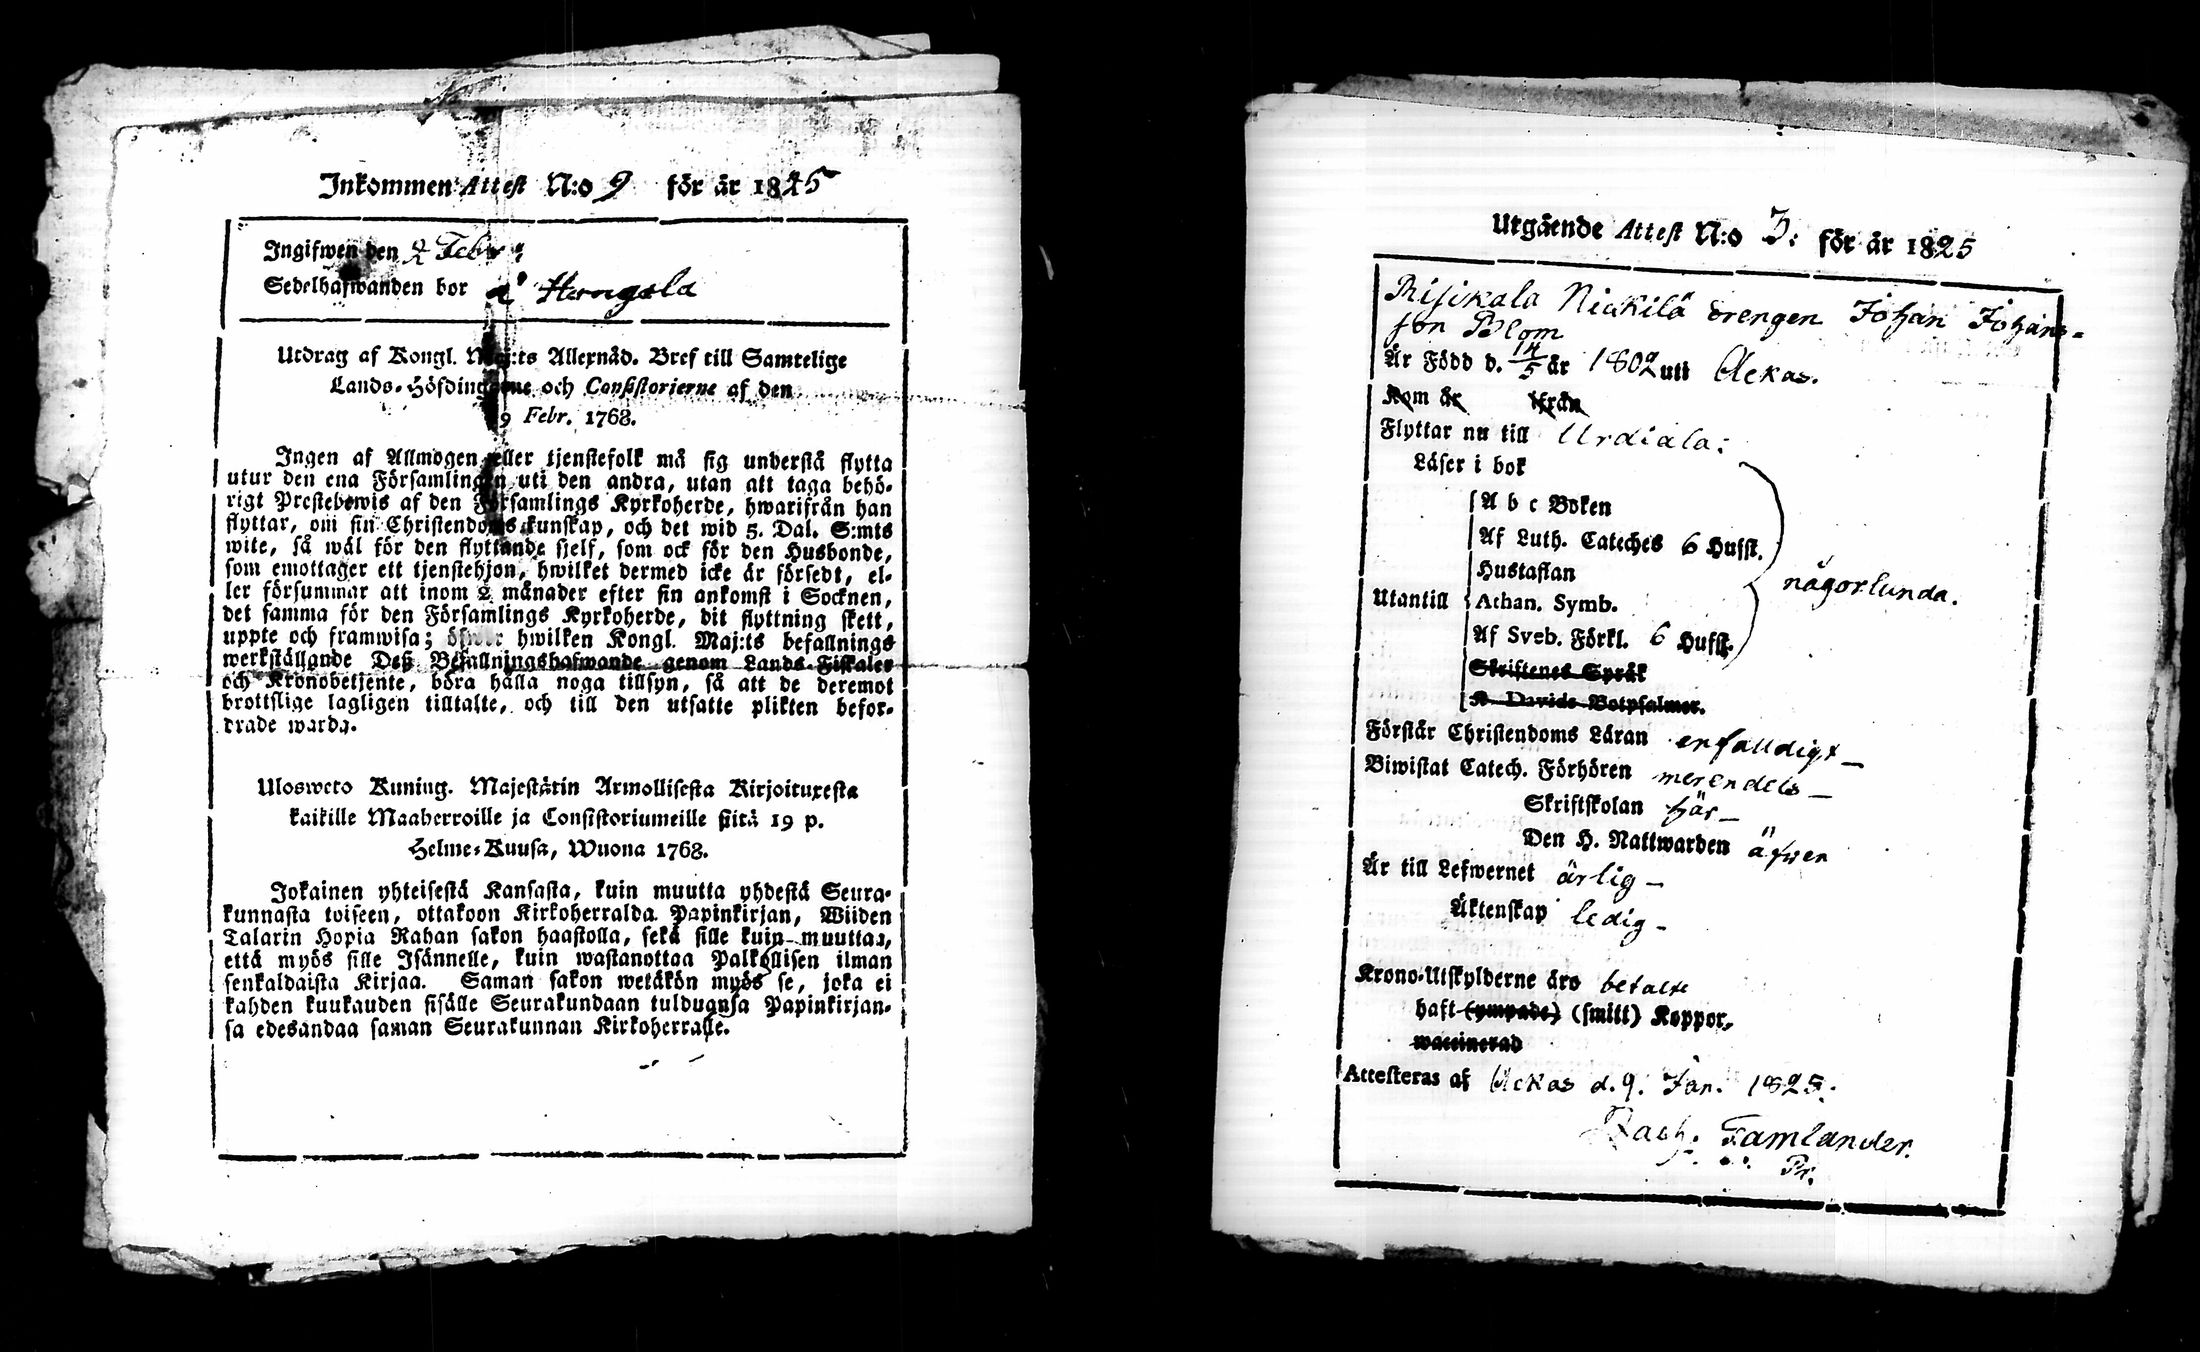 Inkommen Attest N:o 9 för år 1825
Ingifwen den 2 Febr:
Sedelhafwanden bor å Hongola
Utdrag af Kongl. Maj:ts Allernåd. Bref till Samtelige
Lands-Höfdingarne och Consistorierne af den
19 Febr. 1768.
Ingen af Allmogen eller tjenstefolk må sig understå flytta
utur den ena Församlingen uti den andra, utan att taga behö-
rigt Prestebewis af den Församlings Kyrkoherde, hwarifrån han
flyttar, om sin Christendoms kunskap, och det wid 5. Dal. S:mts
wite, så wäl för den flyttande sjelf, som ock för den Husbonde,
som emottager ett tjenstehjon, hwilket dermed icke är försedt, el-
ler försummar att inom 2 månader efter sin ankomst i Socknen,
det samma för den Församlings Kyrkoherde, dit flyttning skett,
uppte och framwisa; öfwer hwilken Kongl. Maj:ts befallnings
werkställande Deß Befallningshafwande genom Lands-Fiskaler
och Kronobetjente, böra hålla noga tillsyn, så att de deremot
brottslige lagligen tilltalte, och till den utsatte plikten befor-
drade warda.
Ulosweto Kuning. Majestätin Armollisesta Kirjoituxesta
kaikille Maaherroille ja Consistoriumeille siitä 19 p.
Helme-Kuusa, Wuona 1768.
Jokainen yhteisestä Kansasta, kuin muutta yhdestä Seura-
kunnasta toiseen, ottakoon Kirkoherralda Papinkirjan, Wiiden
Talarin Hopia Rahan sakon haastolla, sekä sille kuin muuttaa,
että myös sille Isännelle, kuin wastanottaa Palkollisen ilman
senkaldaista Kirjaa. Saman sakon wetäkön myös se, joka ei
kahden kuukauden sisälle Seurakundaan tulduansa Papinkirjan-
sa edesandaa saman Seurakunnan Kirkoherralle.
Utgående Attest N:o 3: för år 1825
Risikala Nickilä drengen Johan Johans-
son Blom
Är Född d. 14/5 år 1802 uti Ackas.
Kom år ifrån
Flyttar nu till Urdiala:
Läser i bok
A b c Boken
Af Luth. Cateches 6 Hufst.
Hustaflan
Utantill Athan. Symb.
någorlunda.
Af Sveb. Förkl. 6 Hufst.
Skriftenes Språk
K. Davids Botpsalmer.
Förstår Christendoms Läran enfalldigt –
Biwistat Catech. Förhören merendels –
Skriftskolan här –
Den H. Nattwarden äfwen
Är till Lefwernet ärlig –
Äktenskap ledig –
Krono-Utskylderne äro betalte
haft (ympade) (smitt) Koppor,
waccinerad
Attesteras af Ackas d. 9. Jan. 1825.
Zach. Famlander.
Pr.